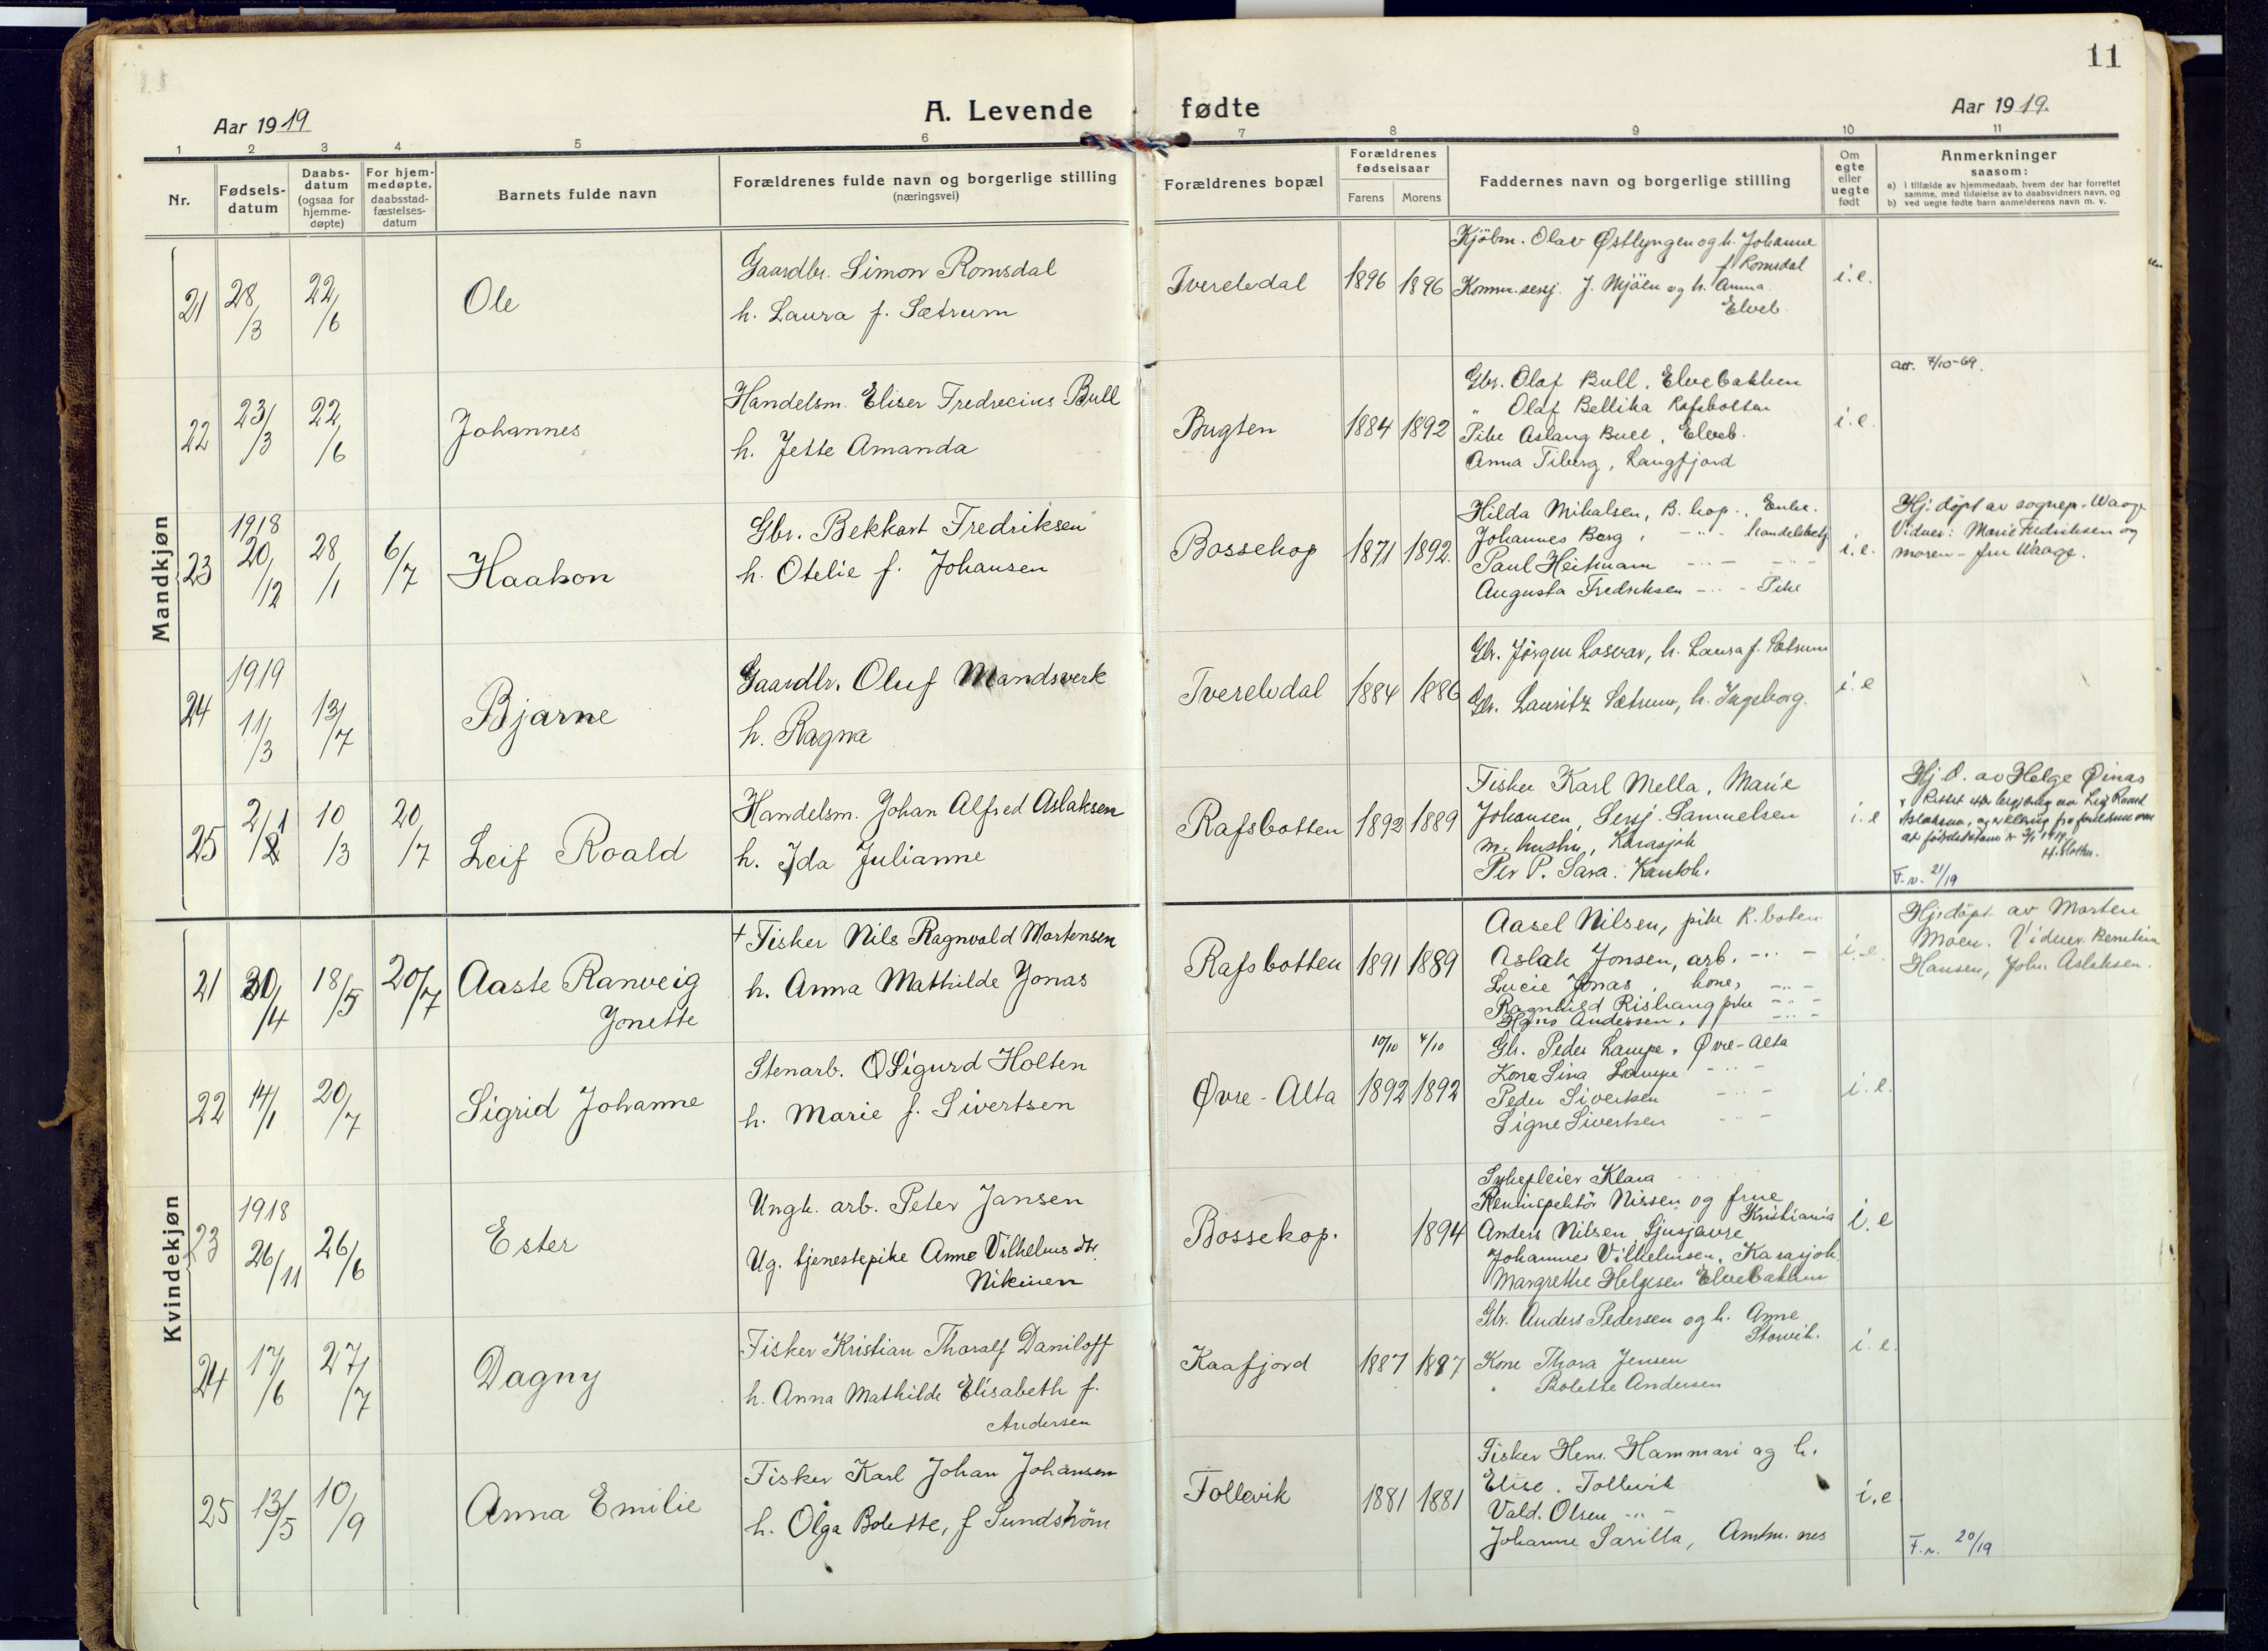 11
A. Levende fødte
Aar 1919
Aar 1919.
1 2 3 4 5 6 7 8 9 10 11
Nr.
Fødsels-
datum
Daabs-
datum
(ogsaa for
hjemme-
døpte)
For hjem-
medøpte,
daabsstad-
fæstelses-
datum
Barnets fulde navn
Forældrenes fulde navn og borgerlige stilling
(næringsvei)
Forældrenes bopæl
Forældrenes
fødselsaar
Farens
Morens
Faddernes navn og borgerlige stilling
Om
egte
eller
uegte
født
Anmerkninger
saasom:
a) i tilfælde av hjemmedaab, hvem der har forrettet
samme, med tilføielse av to daabsvidners navn, og
b) ved uegte fødte barn anmelderens navn m. v.
Mandkjøn
21 28/3 22/6 Ole
Gaardbr. Simon Romsdal
h. Laura f. Sætrum
Tverelvdal 1896 1896
Kjöbm. Olav Østlyngen og h. Johanne
f. Romsdal
J. Mjöen og h. Anna
Elveb.
i.e.
22 23/3 22/6 Johannes
Handelsm. Eliser Fredrecius Bull
h. Jette Amanda
Bugten 1884 1892
Gbr. Olaf Bull, Elvebakken
" Olaf Bellika Rafsbotten
Pike Aslaug Bull, Elveb.
Anna Tiberg, Langfjord
i.e.
att. 7/10-69.
23 1918 20/12 28/1 6/7 Haakon
Gbr. Bekkart Fredriksen
h. Otelie f. Johansen
Bossekop 1871 1892.
Hilda Mikalsen, B.kop., Enke.
Johannes Berg, -"- handelsbetj
Paul Heitmann -"- -"-
Augusta Fredriksen -"- Pike
i.e.
Hj. döpt av sognepr. Waage
Vidner: Marie Fredriksen og
moren - fru Waage.
24 1919 11/3 13/7 Bjarne
Gaardbr. Oluf Mandsverk
h. Ragna
Tverelvdal 1884 1886
Gbr. Jörgen Losvar, h. Laura f. Sætrum
Gbr. Lauritz Sætrum, h. Ingeborg.
i.e
25 2/1 10/3 20/7 Leif Roald
Handelsm. Johan Alfred Aslaksen
h. Ida Julianne
Rafsbotten 1892 1889
Fisker Karl Mella, Marie
Johansen, Sersj. Samuelsen
m. hustru, Karasjok
Per P. Sara. Kautok.
i.e
Hj.d. av Helge Øinas
Rettet efter begjæring av Leif Roald
Aslaksen, og erklæring fra foreldrene om
at fødselsdatum er 2/1 1919.
F.n. 21/19
Kvindekjøn
21 30/4 18/5 20/7 Aaste Ranveig
Jonette
+ Fisker Nils Ragnvald Mortensen
h. Anna Mathilde Jonas
Rafsbotten 1891 1889
Aasel Nilsen, pike R.boten
Aslak Jonsen, arb. -"-
Lucie Jonas, kone, -"-
Ragnhild Rishaug pike -"-
Hans Andersen, -"-
i.e.
Hj.döpt av Morten
Moen. Vidner.
Hansen, Joh. Aslaksen.
22 14/1 20/7 Sigrid Johanne
Stenarb. O Sigurd Holten
h. Marie f. Sivertsen
Øvre-Alta 10/10 1892 4/10 1892
Gbr. Peder Lampe, Øvre-Alta
Kona Sina Lampe -"-
Peder Sivertsen -"-
Signe Sivertsen -"-
i.e.
23 1918 26/11 26/6 Ester
Ungk. arb. Peter Jansen
Ug. tjenestepike Anne Vilhelms dtr.
Nikinen
Bossekop. 1894
Sykepleier Klara
Reninspektör Nissen og frue
Kristiania
Anders Nilsen, Sjusjavre
Johannes Vilhelmsen, Karasjok
Margrethe Helgesen Elvebakken
i.e
24 17/6 27/7 Dagny
Fisker Kristian Thoralf Daniloff
h. Anna Mathilde Elisabeth f.
Andersen
Kaafjord 1887 1887
Gbr. Anders Pedersen og h. Anne
Storvik.
Kone Thora Jensen
" Bolette Andersen
i.e.
25 13/5 10/9 Anna Emilie
Fisker Karl Johan Johansen
h. Olga Bolette, f Sundström
Follevik 1881 1881
Fisker Henr. Hammari og h.
Elise. Tollevik
Vald. Olsen -"-
Johanne Sarilla, Amtm. nes
i.e
F.n. 20/19